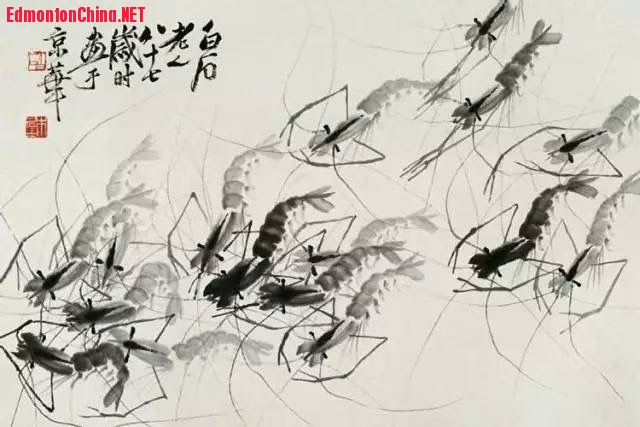 EdmontonChina.NET
白石
老人
八十七
歲时
画于
京華